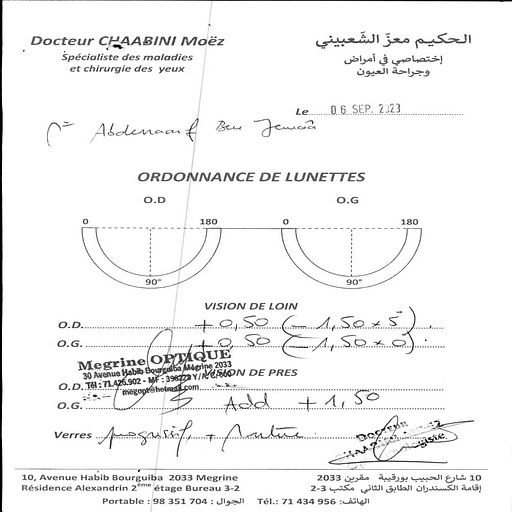 Docteur CHAABINI Moëz
Spécialiste des maladies
et chirurgie des yeux
الحكيم معزّ الشّعبيني
إختصاصي في أمراض
وجراحة العيون
Le 06 SEP. 2023
Ben Jemaa
ORDONNANCE DE LUNETTES
O.D O.G
0 180 0 180
90° 90°
VISION DE LOIN
O.D. +0,50 (-1,50 x 5°)
O.G. +0,50 (-1,50 x 0°)
Megrine OPTIQUE
30 Avenue Habib Bourguiba Megrine 2033
Tél : 71.426.902 - MF :
megopt@hotmail.com
VISION DE PRES
O.D.
O.G. Add +1,50
Verres
DOCTEUR
10, Avenue Habib Bourguiba 2033 Megrine
Résidence Alexandrin 2ème étage Bureau 3-2
Portable : 98 351 704 : الجوال
10 شارع الحبيب بورقيبة مقرين 2033
إقامة الكسندران الطابق الثاني مكتب 3-2
Tél.: 71 434 956 :الهاتف